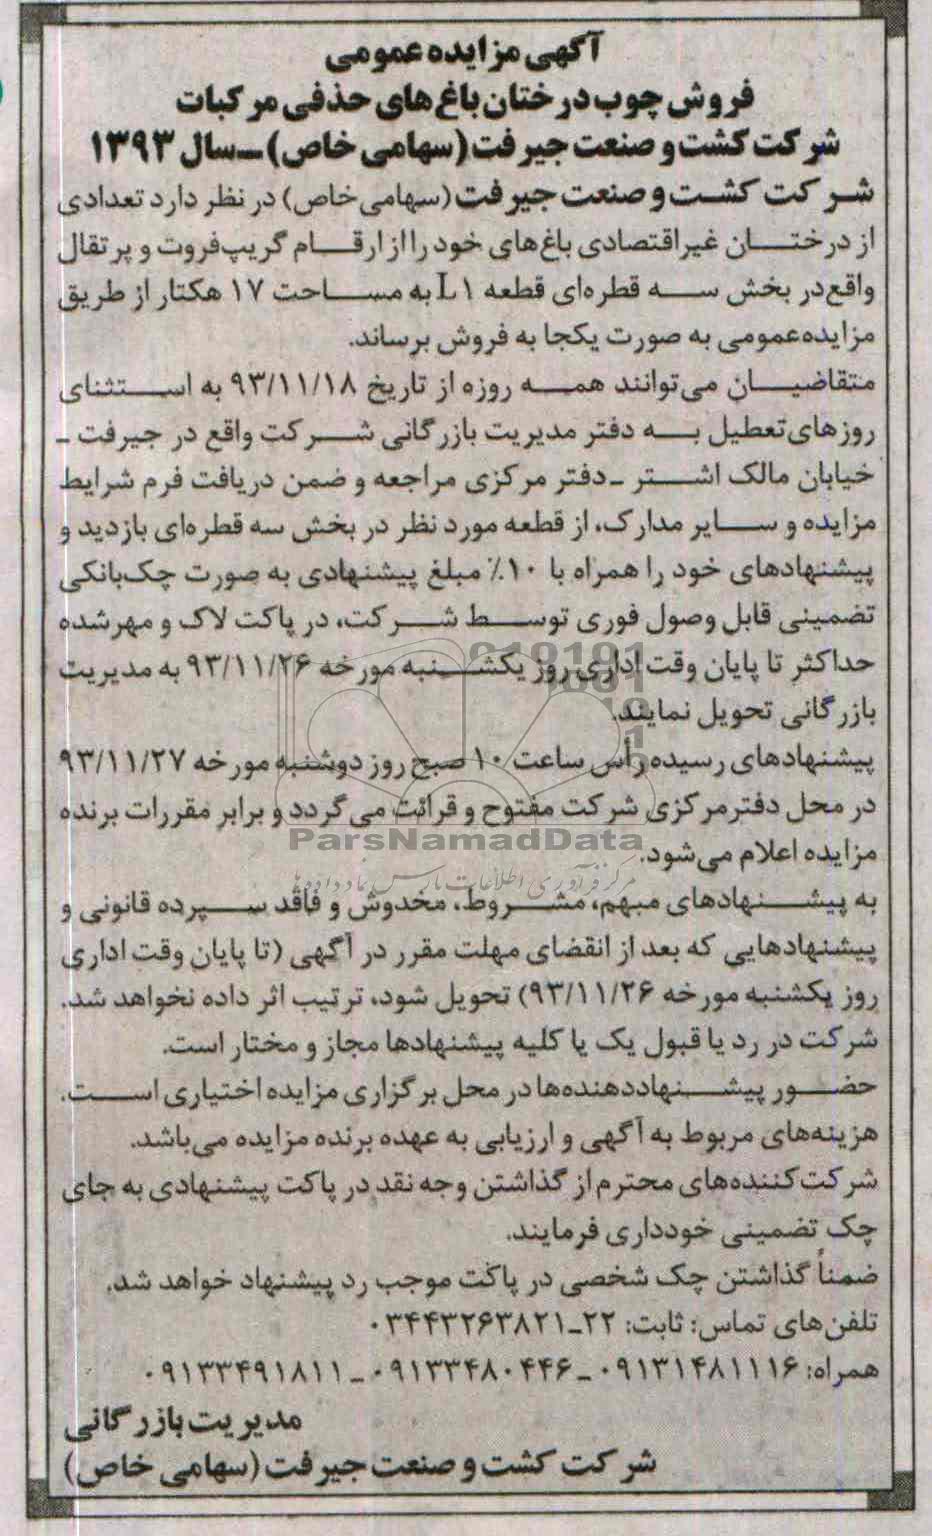 آگهی مزایده عمومی
فروش چوب درختان باغ‌های حذفی مرکبات
شرکت کشت و صنعت جیرفت (سهامی خاص) ـ سال ۱۳۹۳
شرکت کشت و صنعت جیرفت (سهامی خاص) در نظر دارد تعدادی
از درختان غیراقتصادی باغ‌های خود را از ارقام گریپ‌فروت و پرتقال
واقع در بخش سه قطره‌ای قطعه L۱ به مساحت ۱۷ هکتار از طریق
مزایده عمومی به صورت یکجا به فروش برساند.
متقاضیان می‌توانند همه روزه از تاریخ ۹۳/۱۱/۱۸ به استثنای
روزهای تعطیل به دفتر مدیریت بازرگانی شرکت واقع در جیرفت ـ
خیابان مالک اشتر ـ دفتر مرکزی مراجعه و ضمن دریافت فرم شرایط
مزایده و سایر مدارک، از قطعه مورد نظر در بخش سه قطره‌ای بازدید و
پیشنهادهای خود را همراه با ۱۰٪ مبلغ پیشنهادی به صورت چک‌بانکی
تضمینی قابل وصول فوری توسط شرکت، در پاکت لاک و مهرشده
حداکثر تا پایان وقت اداری روز یکشنبه مورخه ۹۳/۱۱/۲۶ به مدیریت
بازرگانی تحویل نمایند.
پیشنهادهای رسیده رأس ساعت ۱۰ صبح روز دوشنبه مورخه ۹۳/۱۱/۲۷
در محل دفتر مرکزی شرکت مفتوح و قرائت می‌گردد و برابر مقررات برنده
ParsNamadData
مزایده اعلام می‌شود.
مرکز فرآوری اطلاعات پارس نماد داده‌ها
به پیشنهادهای مبهم، مشروط، مخدوش و فاقد سپرده قانونی و
پیشنهادهایی که بعد از انقضای مهلت مقرر در آگهی (تا پایان وقت اداری
روز یکشنبه مورخه ۹۳/۱۱/۲۶) تحویل شود، ترتیب اثر داده نخواهد شد.
شرکت در رد یا قبول یک یا کلیه پیشنهادها مجاز و مختار است.
حضور پیشنهاددهنده‌ها در محل برگزاری مزایده اختیاری است.
هزینه‌های مربوط به آگهی و ارزیابی به عهده برنده مزایده می‌باشد.
شرکت‌کننده‌های محترم از گذاشتن وجه نقد در پاکت پیشنهادی به جای
چک تضمینی خودداری فرمایند.
ضمناً گذاشتن چک شخصی در پاکت موجب رد پیشنهاد خواهد شد.
تلفن‌های تماس: ثابت: ۲۲ـ۰۳۴۴۳۲۶۳۸۲۱
همراه: ۰۹۱۳۱۴۸۱۱۱۶ ـ ۰۹۱۳۳۴۸۰۴۴۶ ـ ۰۹۱۳۳۴۹۱۸۱۱
مدیریت بازرگانی
شرکت کشت و صنعت جیرفت (سهامی خاص)